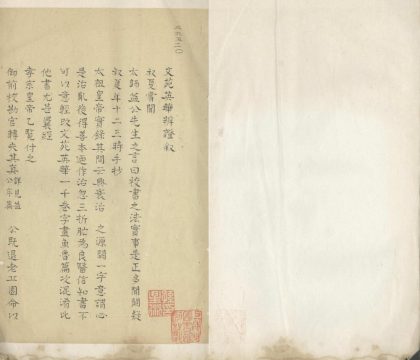 文苑英華辨證敘
叔夏嘗聞
太師益公先生之言曰校書之法實事是正多聞闕疑
叔夏年十二三時手抄
太祖皇帝實錄其間云興衰治 之源闕一字意謂必
是治亂後得善本迺作治忽三折肱為良醫信知書不
可以意輕改文苑英華一千卷字畫魚魯篇次混淆比
他書尤甚曩經
孝宗皇帝乙覽付之
御前校勘官轉失其真詳見益公序篇 公既退老丘園命以